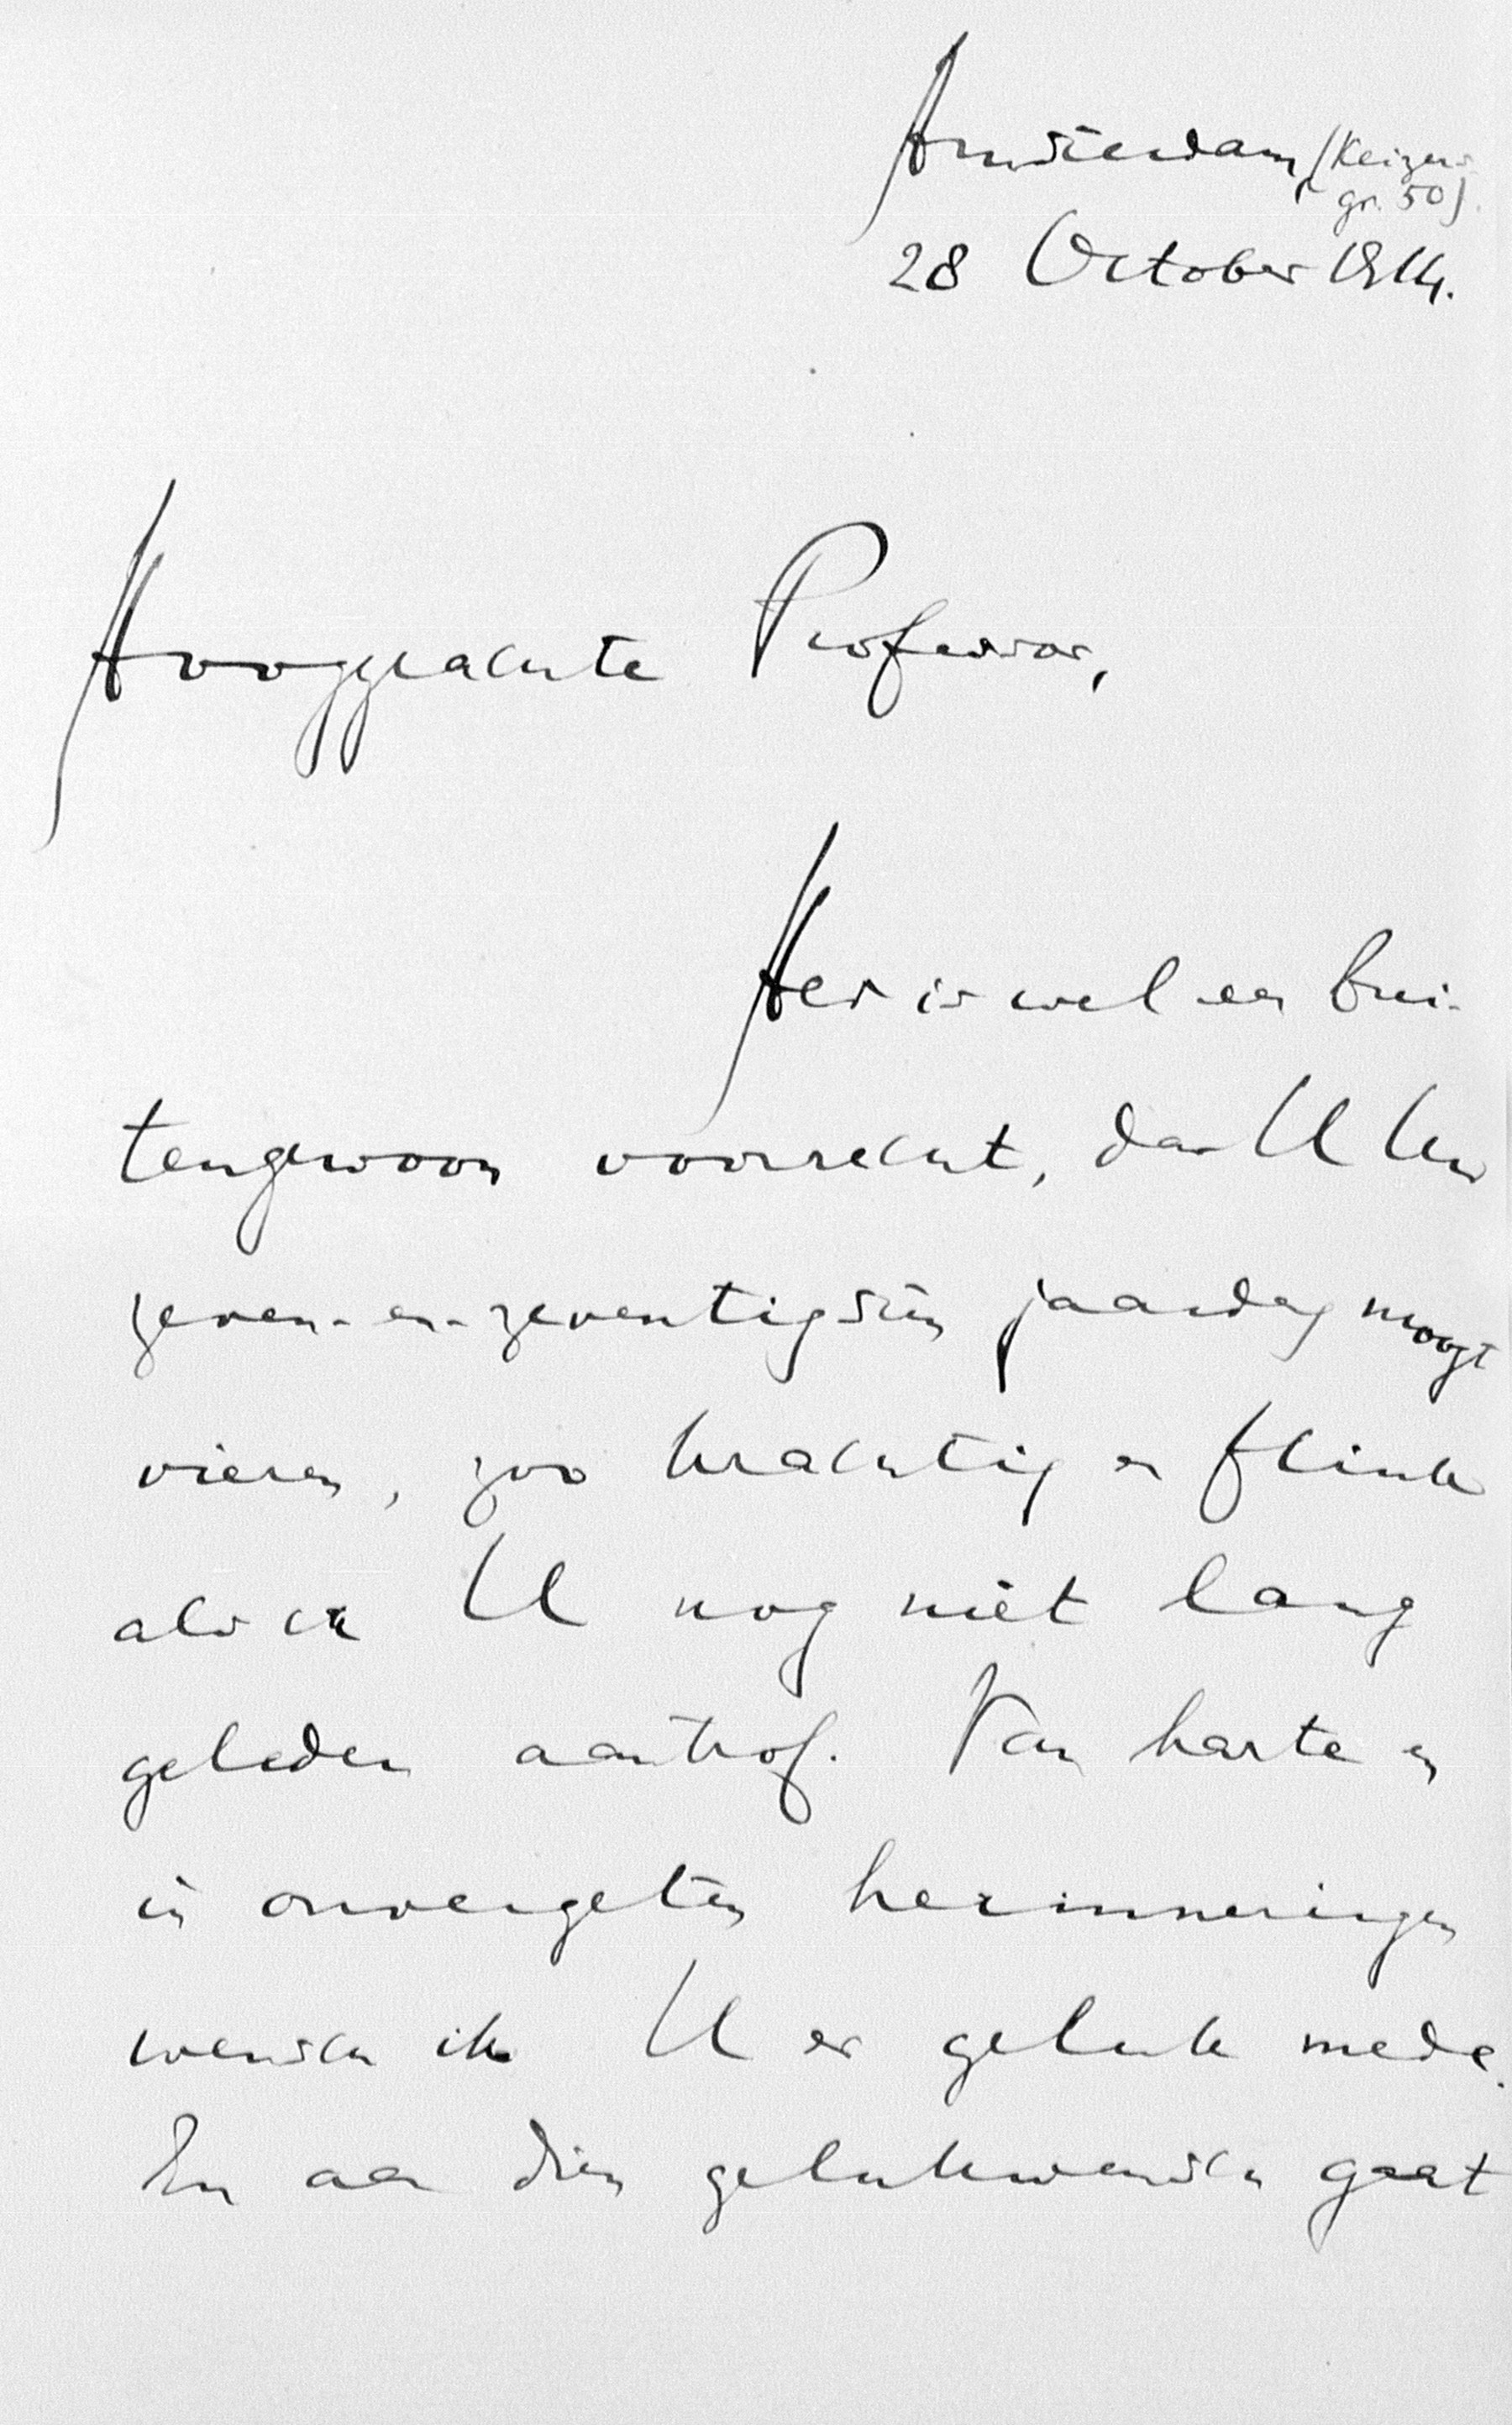 Amsterdam, (Keizers-
gr. 50).
28 October 1914.
Hooggeachte Professor,
Het is wel een bui-
tengewoon voorrecht, dat U Uw
zeven-en-zeventigsten jaardag moogt
vieren, zoo krachtig en flink
als ik U nog niet lang
geleden aantrof. Van harte en
in onvergeten herinneringen
wensch ik U er geluk mede.
En aan dien gelukwensch gaat